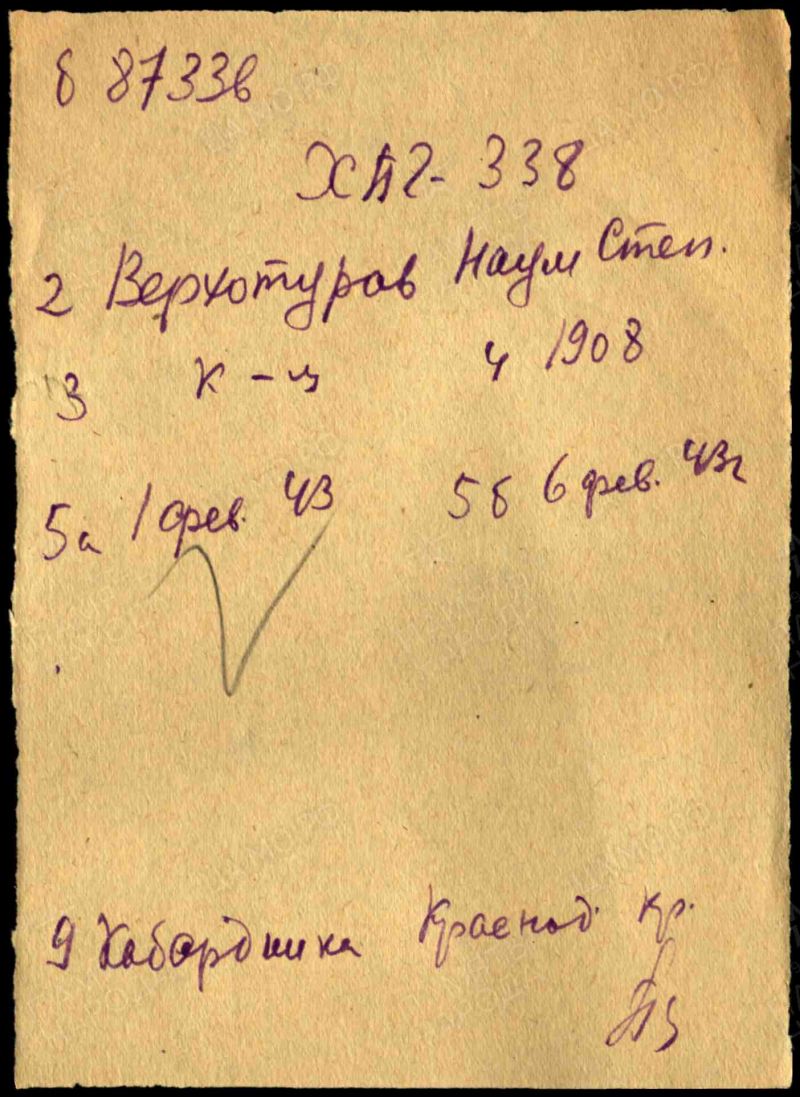 8 8733в
ХПГ- 338
2 Верхотуров Наум Степ.
3 к-ц 4 1908
5а 1 фев. 43 5б 6 фев. 43г
9 Хабардинка Краснод. кр.